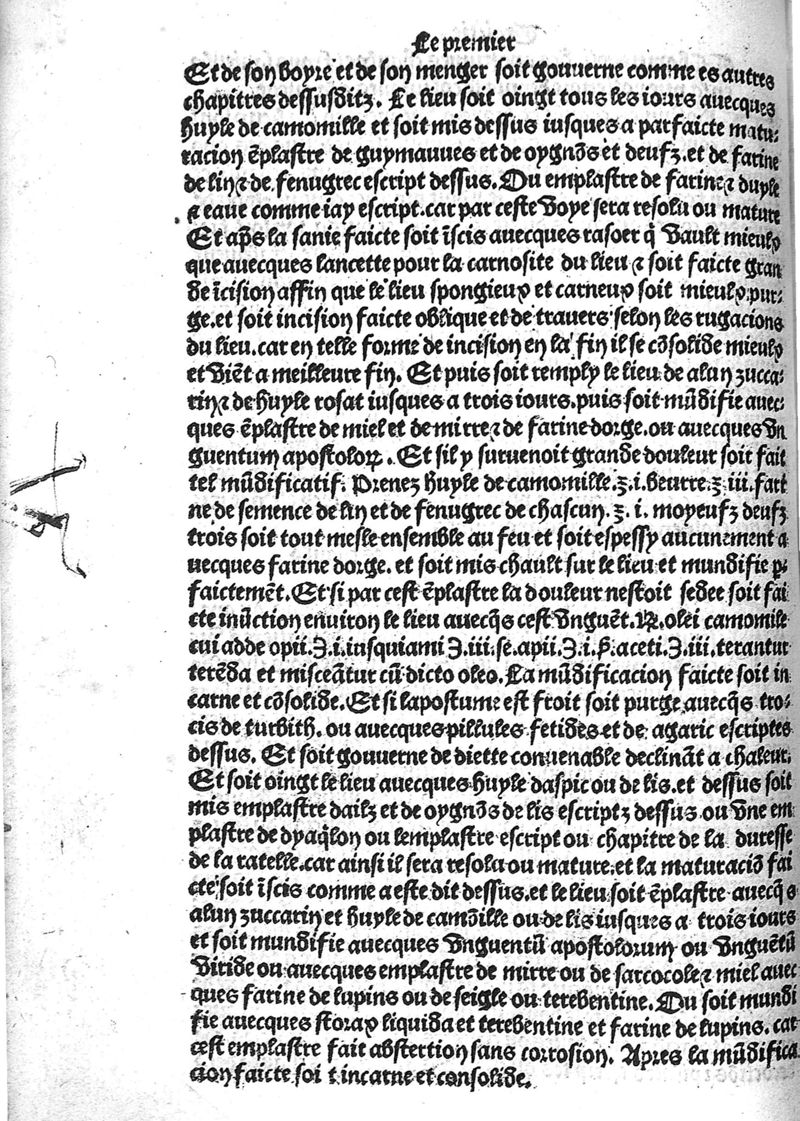 Le premier
Et de son boyre et de son menger soit gouuerne comme es autres
chapitres dessusditz. Le lieu soit oingt tous les iours auecques
huyle de camomille et soit mis dessus iusques a parfaicte matu-
racion ẽplastre de guymauues et de oygnõs et deufz.et de farine
de lin⁊ de fenugrec escript dessus. Ou emplastre de farine⁊ duyle
⁊ eaue comme iay escript.car par ceste voye sera resolu ou mature
Et aps̃ la sanie faicte soit ĩscis auecques rasoer q̃ vault mieulx
que auecques lancette pour la carnosite du lieu ⁊ soit faicte gran
de ĩcision affin que le lieu spongieux et carneux soit mieulx pur-
ge.et soit incision faicte oblique et de trauers selon les rugacions
du lieu.car en telle forme de incision en la fin il se cõsolide mieulx
et viẽt a meilleure fin. Et puis soit remply le lieu de alun zucca-
rin⁊ de huyle rosat iusques a trois iours.puis soit mũdifie auec-
ques ẽplastre de miel et de mirre⁊ de farine dorge.ou auecques vn
guentum apostoloꝝ. Et sil y suruenoit grande douleur soit fait
tel mũdificatif. Prenez huyle de camomille.ʒ.i.beurre.ʒ.iii.fari
ne de semence de lin et de fenugrec de chascun.ʒ.i. moyeufz deufz
trois soit tout mesle ensemble au feu et soit espessy aucunement a
uecques farine dorge. et soit mis chault sur le lieu et mundifie p̱
faictemẽt. Et si par cest ẽplastre la douleur nestoit sedee soit fai
cte inũction enuiron le lieu auecq̃s cest vnguẽt.℞.olei camomile
cui adde opii.ʒ.i.iusquiami ʒ.iii.se.apii.ʒ.i.ß.aceti.ʒ.iii.terantur
terẽda et misceãtur cũ dicto oleo. La mũdificacion faicte soit in
carne et cõsolide. Et si lapostume est froit soit purge auecq̃s tro-
cis de turbith. ou auecques pillules fetides et de agaric escriptes
dessus. Et soit gouuerne de diette conuenable declinãt a chaleur.
Et soit oingt le lieu auecques huyle daspic ou de lis.et dessus soit
mis emplastre dailz et de oygnõs de lis escriptz dessus.ou vne em
plastre de dyaq̃lon ou lemplastre escript ou chapitre de la duresse
de la ratelle.car ainsi il sera resolu ou mature.et la maturaciõ fai
cte soit ĩscis comme a este dit dessus.et le lieu soit ẽplastre auecq̃s
alun zuccarin et huyle de camõille ou de lis iusques a trois iours
et soit mundifie auecques vnguentũ apostolorum ou vnguẽtũ
viride ou auecques emplastre de mirre ou de sarcocole⁊ miel auec
ques farine de lupins ou de seigle ou terebentine. Ou soit mundi
fie auecques storax liquida et terebentine et farine de lupins. car
cest emplastre fait abstertion sans corrosion. Apres la mũdifica
cion faicte soi t incarne et consolide.